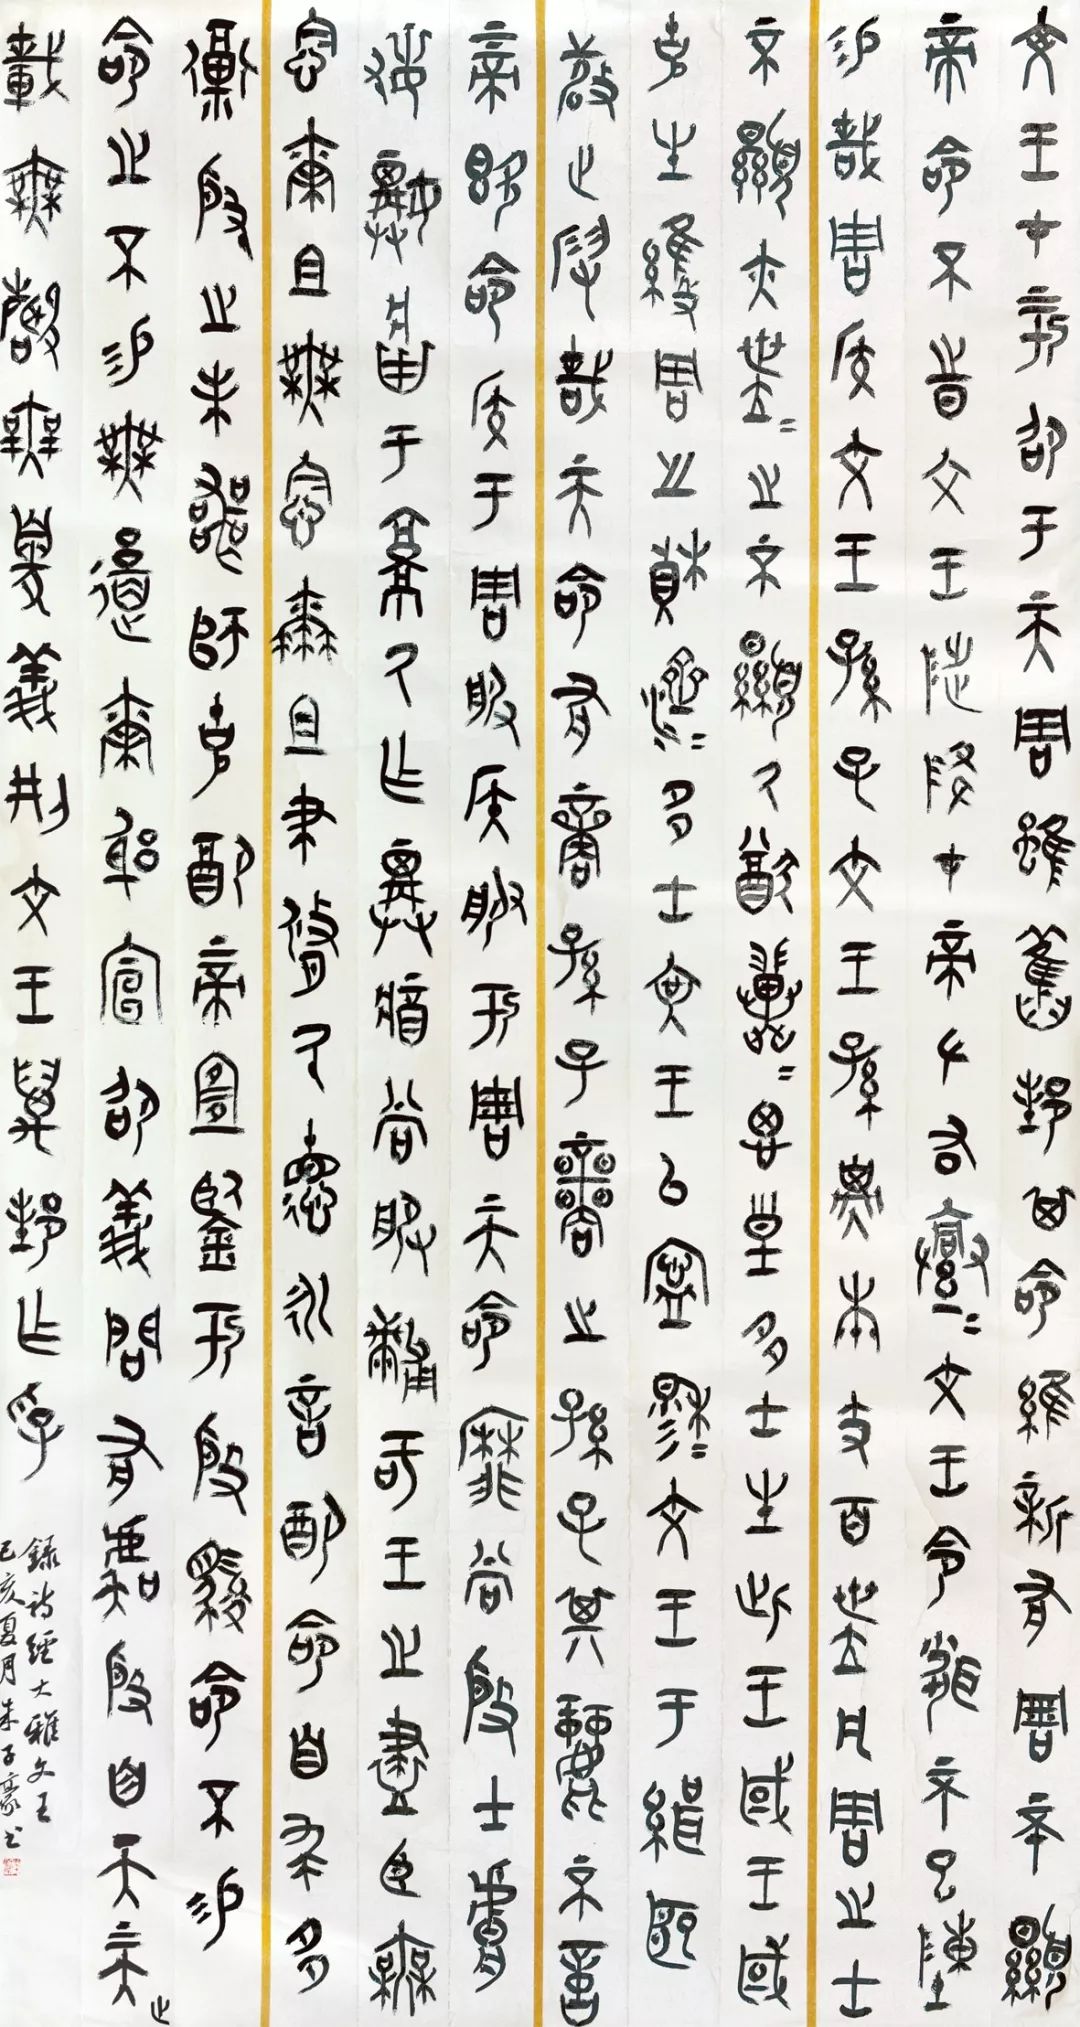 文王在上於昭于天周雖舊邦其命維新有周不顯
帝命不時文王陟降在帝左右亹〻文王令聞不已陳
錫哉周侯文王孫子文王孫子本支百世凡周之士
不顯亦世〻之不顯厥猶翼〻思皇多士生此王國王國
克生維周之楨濟〻多士文王以寧穆〻文王於緝熙
敬止假哉天命有商孫子商之孫子其麗不億上
帝既命侯于周服侯服于周天命靡常殷士膚
敏祼將于京厥作祼將常服黼冔王之藎臣無
念爾祖無念爾祖聿脩厥德永言配命自求多
福殷之未喪師克配上帝宜鑒于殷駿命不易
命之不易無遏爾躬宣昭義問有虞殷自天上天之
載無聲無臭儀刑文王萬邦作孚
錄詩經大雅文王
己亥夏月朱子豪书